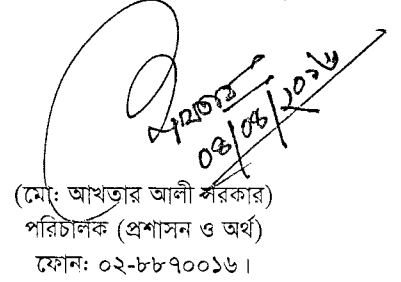 আখতার
০৪/০৪/২০১৬
(মো: আখতার আলী সরকার)
পরিচালক (প্রশাসন ও অর্থ)
ফোন: ০২-৮৮৭০০১৬।